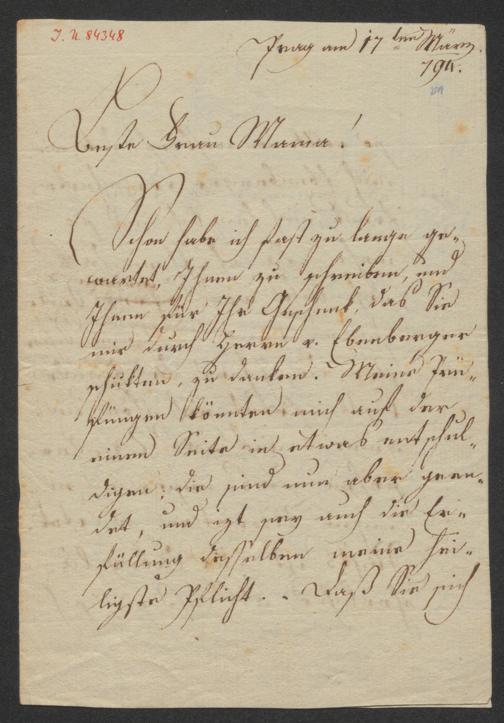 I. N. 84348
Prag am 17ten März.
794.
Beste Frau Mama!
Schon habe ich fast zu lange ge-
wartet, Ihnen zu schreiben, und
Ihnen für Ihr Geschenk, das Sie
mir durch Herrn v. Ebenberger
schickten, zu danken. Meine Prü-
fungen könnten mich auf der
einen Seite in etwas entschul-
digen; die sind nun aber geen-
det, und izt sey auch die Er-
füllung desselben meine hei-
ligste Pflicht. - Daß Sie sich